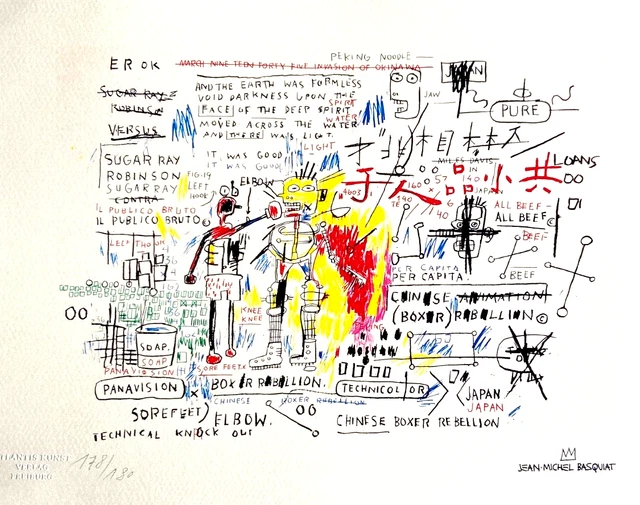 PEKING NOODLE
EROK
MARCH NINETEEN FORTY FIVE INVASION OF OKINAWA
JAPAN
SUGAR RAY
ROBINSON
VERSUS
AND THE EARTH WAS FORMLESS
VOID DARKNESS UPON THE
FACE OF THE DEEP SPIRIT
SPIRIT
MOVED ACROSS THE WATER
WATER
AND THERE WAS LIGHT.
LIGHT
JAW
PURE
IT WAS GOOD
IT WAS GOOD
SUGAR RAY
ROBINSON
SUGAR RAY
CONTRA
IL PUBLICO BRUTO
IL PUBLICO BRUTO
FIG. 19
LEFT
HOOK
ELBOW
MILES DAVIS
IN
JAPAN
LOANS
人品小共
ALL BEEF
ALL BEEF
BEEF
BEEF
PER CAPITA
PER CAPITA
CHINESE ANIMATION
(BOXER) REBELLION ©
KNEE
KNEE
SOAP.
SOAP
PANAVISION
SORE FEET
PANAVISION
BOXER REBELLION.
TECHNICOLOR
CHINESE BOXER REBELLION
JAPAN
JAPAN
SOREFEET)
ELBOW.
CHINESE BOXER REBELLION
TECHNICAL KNOCK OUT
ATLANTIS KUNST
VERLAG
FREIBURG
178/180
JEAN-MICHEL BASQUIAT